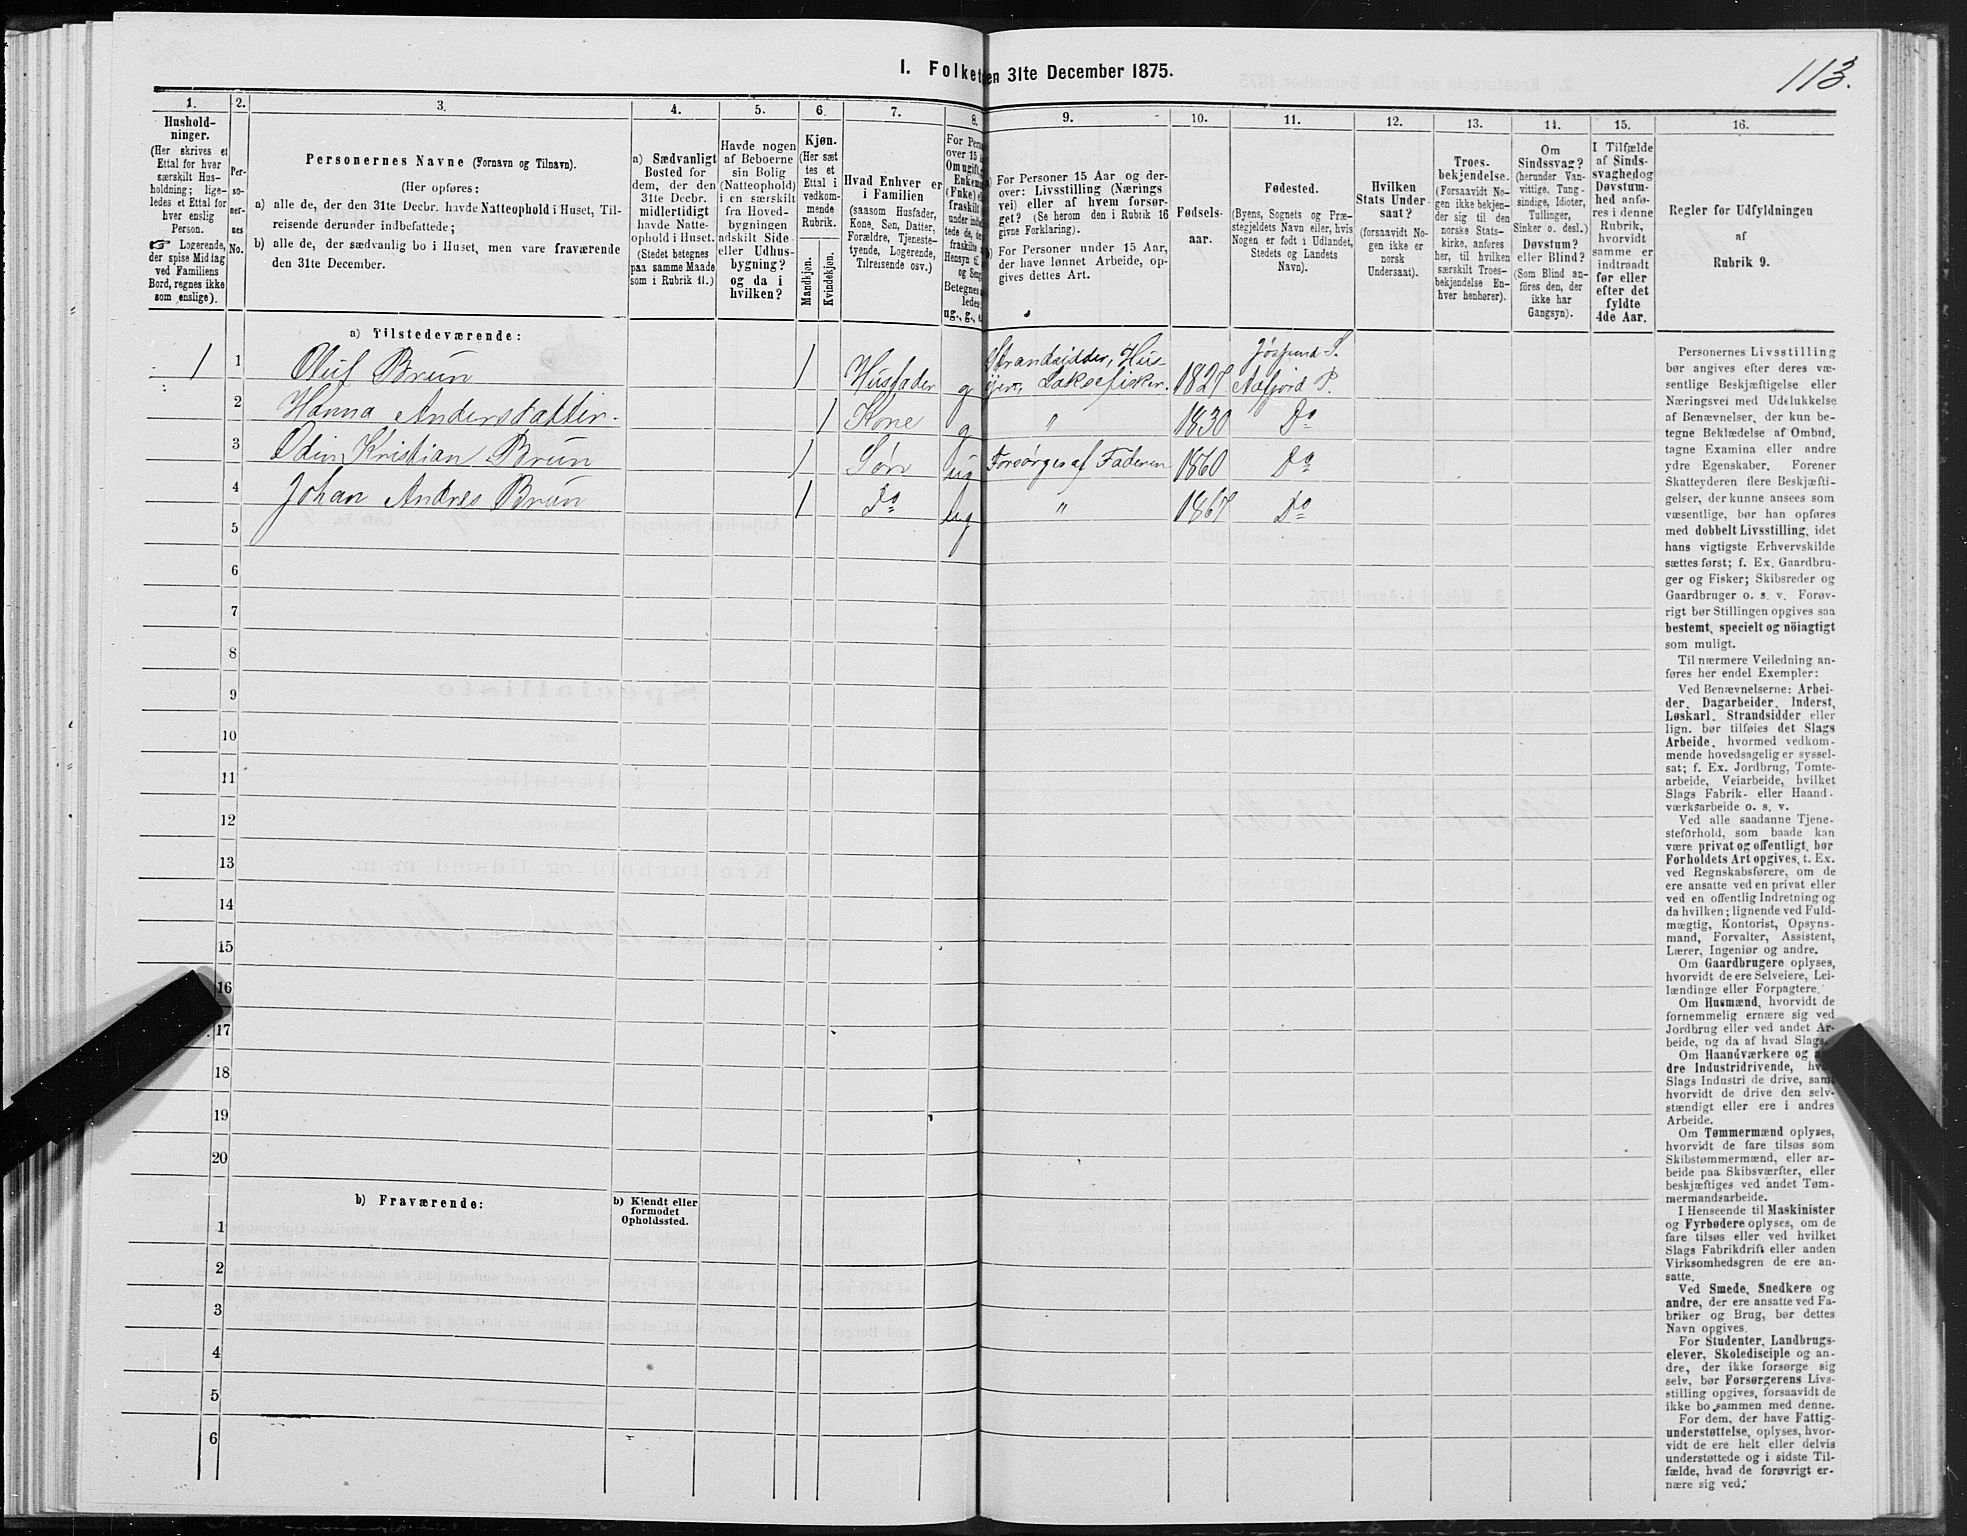 I. Folket en 31te December 1875.
113.
1.
Hushold-
ninger.
(Her skrives et
Ettal for hver
særskilt Hus-
holdning; lige-
ledes et Ettal for
hver enslig
Person.
☞ Logerende,
der spise Middag
ved Familiens
Bord, regnes ikke
som enslige).
2.
Per-
so-
ner-
nes
No.
3.
Personernes Navne (Fornavn og Tilnavn).
(Her opføres:
a) alle de, der den 31te Decbr. havde Natteophold i Huset, Til-
reisende derunder indbefattede;
b) alle de, der sædvanlig bo i Huset, men vare fraværende
den 31te December.
4.
a) Sædvanligt
Bosted for
dem, der den
31te Decbr.
midlertidigt
havde Natte-
ophold i Huset.
(Stedet betegnes
paa samme Maade
som i Rubrik 11.)
5.
Havde nogen
af Beboerne
sin Bolig
(Natteophold)
i en særskilt
fra Hoved-
bygningen
adskilt Side-
eller Udhus-
bygning?
og da i
hvilken?
6.
Kjøn.
(Her sæt
tes et
Ettal i
vedkom-
mende
Rubrik.
Mandkjøn.
Kvindekjøn.
7.
Hvad Enhver er
i Familien
(saasom Husfader,
Kone, Søn, Datter,
Forældre, Tjeneste-
tyende, Logerende,
Tilreisende osv.)
8.
For Pers
over 15
Om ugift,
Enkema
(Enke)
fraskilt
9.
For Personer 15 Aar og der-
over: Livsstilling (Nærings
vei) eller af hvem forsør-
get? (Se herom den i Rubrik 16
givne Forklaring).
For Personer under 15 Aar,
der have lønnet Arbeide, op-
gives dettes Art.
10.
Fødsels-
aar.
11.
Fødested.
(Byens, Sognets og Præ-
stegjeldets Navn eller, hvis
Nogen er født i Udlandet,
Stedets og Landets
Navn).
12.
Hvilken
Stats Under-
saat?
(forsaavidt No-
gen ikke er
norsk
Undersaat).
13.
Troes-
bekjendelse.
(Forsaavidt No-
gen ikke bekjen-
der sig til den
norske Stats-
kirke, anføres
her, til hvilken
særskilt Troes-
bekjendelse En-
hver henhører).
14.
Om
Sindssvag?
(herunder Van-
vittige, Tung-
sindige, Idioter,
Tullinger,
Sinker o. desl.)
Døvstum?
eller Blind?
(Som Blind an-
føres den, der
ikke har
Gangsyn).
15.
I Tilfælde
af Sinds-
svaghed og
Døvstum-
hed anfø-
res i denne
Rubrik,
hvorvidt
samme er
indtraadt
før eller
efter det
fyldte
4de Aar.
16.
Regler for Udfyldningen
af
Rubrik 9.
a) Tilstedeværende:
1 1 Oluf Brun 1 Husfader g Strandsidder, Hus-
Laksefisker. 1827 Jøssund S.
Aafjord P.
2 Hanna Andersdatter. 1 Kone g " 1830 Do
3 Odin Kristian Brun 1 Søn ug Forsørges af Faderen 1860 Do
4 Johan Andres Brun 1 Do ug " 1867 Do
5
6
7
8
9
10
11
12
13
14
15
16
17
18
19
20
b) Fraværende:
b) Kjendt eller
formodet
Opholdssted.
1
2
3
4
5
6
Personernes Livsstilling
bør angives efter deres væ-
sentlige Beskjæftigelse eller
Næringsvei med Udelukkelse
af Benævnelser, der kun be-
tegne Beklædelse af Ombud,
tagne Examina eller andre
ydre Egenskaber. Forener
Skatteyderen flere Beskjæfti-
gelser, der kunne ansees som
væsentlige, bør han opføres
med dobbelt Livsstilling, idet
hans vigtigste Erhvervskilde
sættes først; f. Ex. Gaardbru-
ger og Fisker; Skibsreder og
Gaardbruger o. s. v. Forøv-
rigt bør Stillingen opgives saa
bestemt, specielt og nöiagtigt
som muligt.
Til nærmere Veiledning an-
føres her endel Exempler:
Ved Benævnelserne: Arbei-
der, Dagarbeider, Inderst,
Løskarl, Strandsidder eller
lign. bør tilføies det Slags
Arbeide, hvormed vedkom-
mende hovedsagelig er syssel-
sat; f. Ex. Jordbrug, Tomte-
arbeide, Veiarbeide, hvilket
Slags Fabrik- eller Haand-
værksarbeide o. s. v.
Ved alle saadanne Tjene-
steforhold, som baade kan
være privat og offentligt, bør
Forholdets Art opgives, t. Ex.
ved Regnskabsførere, om de
ere ansatte ved en privat eller
ved en offentlig Indretning og
da hvilken; lignende ved Fuld-
mægtig, Kontorist, Opsyns-
mand, Forvalter, Assistent,
Lærer, Ingeniør og andre.
Om Gaardbrugere oplyses,
hvorvidt de ere Selveiere, Lei-
lændinge eller Forpagtere.
Om Husmænd, hvorvidt de
fornemmelig ernære sig ved
Jordbrug eller ved andet Ar-
beide, og da af hvad Slags.
Om Haandværkere og
dre Industridrivende,
Slags Industri de drive, samt
hvorvidt de drive den selv-
stændigt eller ere i andres
Arbeide.
Om Tømmermænd oplyses,
hvorvidt de fare tilsøs som
Skibstømmermænd, eller ar-
beide paa Skibsværfter, eller
beskjæftiges ved andet Tøm-
mermandsarbeide.
I Henseende til Maskinister
og Fyrbødere oplyses, om de
fare tilsøs eller ved hvilket
Slags Fabrikdrift eller anden
Virksomhedsgren de ere an-
satte.
Ved Smede, Snedkere og
andre, der ere ansatte ved Fa-
briker og Brug, bør dettes
Navn opgives.
For Studenter, Landbrugs-
elever, Skoledisciple og an-
dre, der ikke forsørge sig
selv, bør Forsørgerens Livs-
stilling opgives, forsaavidt de
ikke bo sammen med denne.
For dem, der have Fattig-
understøttelse, oplyses, hvor-
vidt de ere helt eller delvis
understøttede og i sidste Til-
fælde, hvad de forøvrigt er-
nære sig ved.